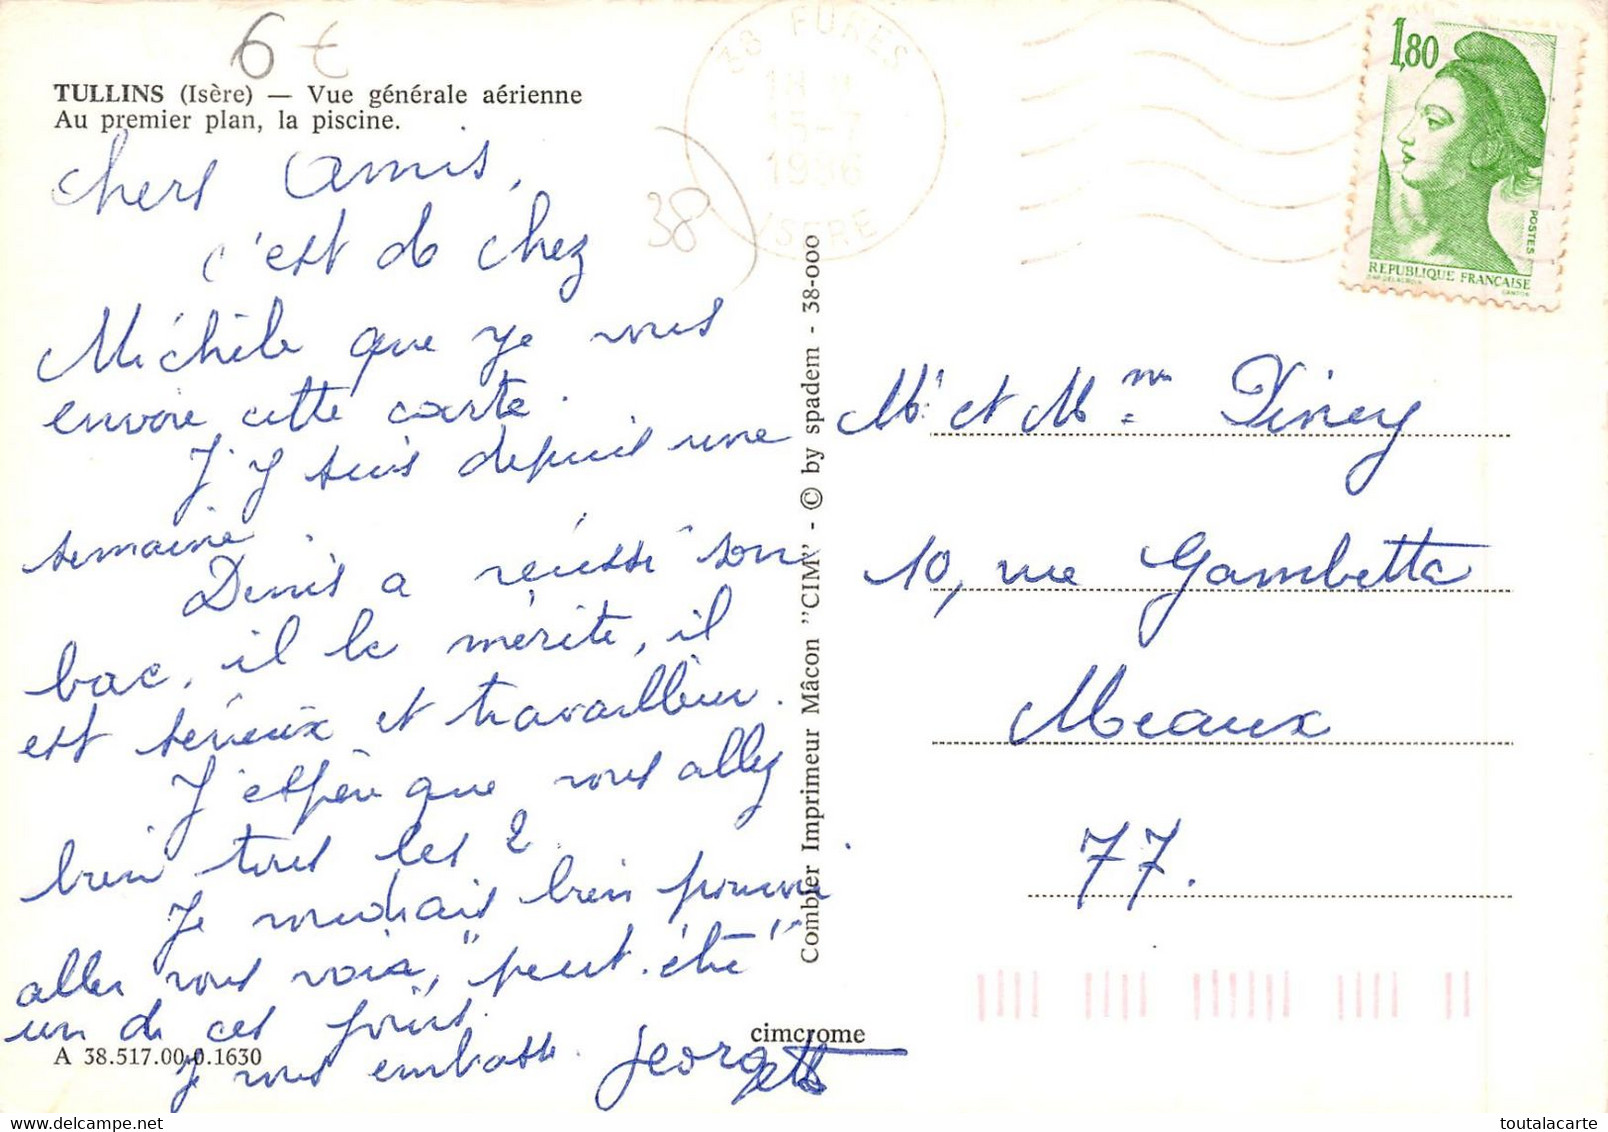 6 €
TULLINS (Isère) — Vue générale aérienne
Au premier plan, la piscine.
Chers Amis,
c'est de chez
Michèle que je vous
envoie cette carte.
J'y suis depuis une
semaine
Denis a réussi son
bac, il le mérite, il
est sérieux et travailleur.
J'espère que vous allez
bien tous les 2.
Je voudrais bien pouvoir
aller vous voir, "peut-être"
un de ces jours.
Je vous embrasse. Georgette
A 38.517.00.0.1630
cimcrome
38
Combier Imprimeur Mâcon "CIM" - © by spadem - 38-000
38 FURES
18 H
15-7
1986
ISERE
1,80
POSTES
REPUBLIQUE FRANÇAISE
D'AP. DELACROIX
GANDON
Mr et Mme Piney
10, rue Gambetta
Meaux
77.
toutalacarte